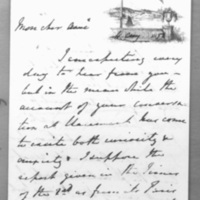 Mon cher ami
I am expecting every
day to hear from you—
but in the mean while the
account of your conversa
tion at has come
to excite both curiosity &
anxiety & I suppose the
report given in the Times
of the 2nd as from its Paris